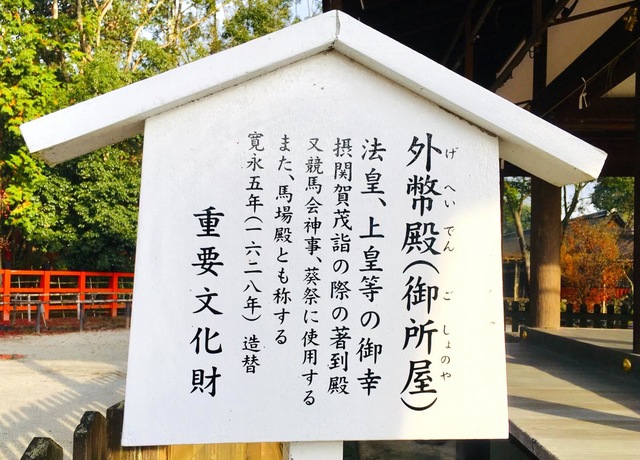 外幣殿(御所屋)
げへいでん ごしょのや
法皇、上皇等の御幸
摂関賀茂詣の際の著到殿
又競馬会神事、葵祭に使用する
また、馬場殿とも称する
寛永五年(一六二八年) 造替
重要文化財